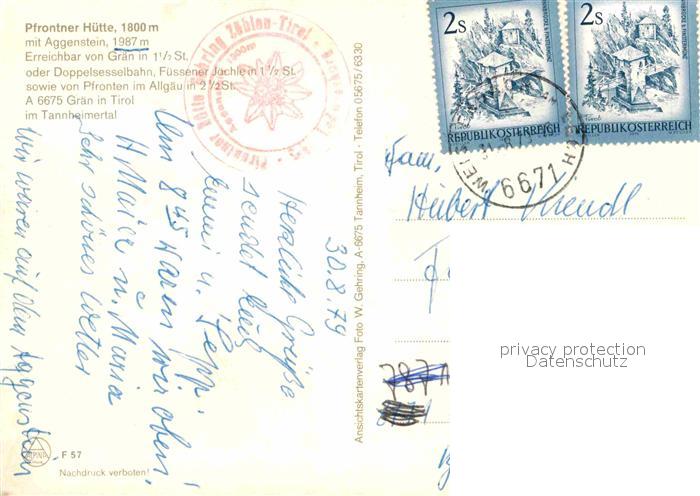 Pfrontner Hütte, 1800 m
mit Aggenstein, 1987 m
Erreichbar von Grän in 1 1/2 St.
oder Doppelsesselbahn, Füssener Jöchle in 1 1/2 St.
sowie von Pfronten im Allgäu in 2 1/2 St.
A 6675 Grän in Tirol
im Tannheimertal
30.8.79
Herzliche Grüße
sendet Euch
u. Sepp.
Um 8 45 waren wir oben!
H Maier u. Maria
Sehr schönes Wetter
Wir waren auf dem Aggenstein
F 57
Nachdruck verboten!
Ansichtskartenverlag Foto W. Gehring, A-6675 Tannheim, Tirol - Telefon 05675/6330
2 S
REPUBLIK ÖSTERREICH
2 S
REPUBLIK ÖSTERREICH
6671
Fam.
Hubert
privacy protection
Datenschutz